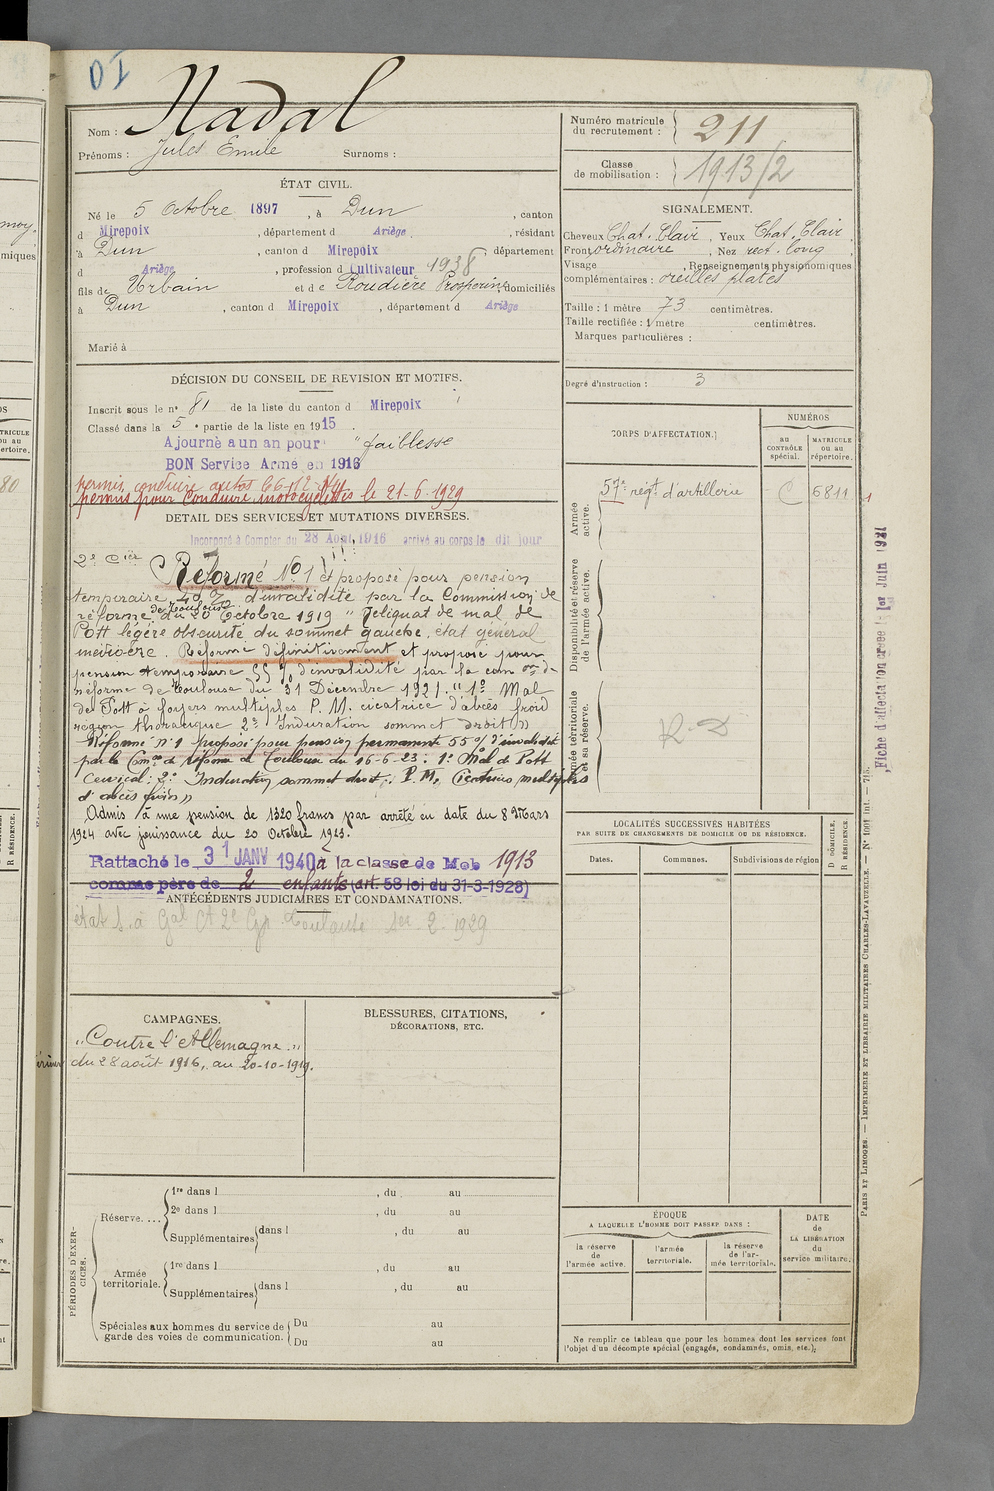 DI
Nom : Nadal
Prénoms : Jules Emile Surnoms :
Numéro matricule du recrutement : 211
Classe de mobilisation : 1913/2
ÉTAT CIVIL.
Né le 5 Octobre 1897, à Dun, canton
d Mirepoix, département d Ariège, résidant
à Dun, canton d Mirepoix, département
d Ariège, profession d Cultivateur 1938
fils de Urbain et de Roudière Prosperine, domiciliés
à Dun, canton d Mirepoix, département d Ariège
Marié à
SIGNALEMENT.
Cheveux Chat. Clair, Yeux Chat. Clair,
Front ordinaire, Nez rect. long
Visage , Renseignements physionomiques
complémentaires : oreilles plates
Taille : 1 mètre 73 centimètres.
Taille rectifiée : 1 mètre centimètres.
Marques particulières :
Degré d'instruction : 3
DÉCISION DU CONSEIL DE REVISION ET MOTIFS.
Inscrit sous le n° 81 de la liste du canton d Mirepoix
Classé dans la 5e partie de la liste en 1915.
Ajourné a un an pour "faiblesse
BON Service Armé en 1916
permis conduire autos
permis pour Conduire motocyclettes le 21-6-1929
DETAIL DES SERVICES ET MUTATIONS DIVERSES.
Incorporé à Compter du 28 Août 1916 arrivé au corps le dit jour
Réformé No 1 et proposé pour pension
temporaire d'invalidité par la Commission de
réforme de Toulouse du 20 Octobre 1919 " Reliquat de mal de
Pott légère obscurité du sommet gauche, état général
médiocre. Réformé définitivement et proposé pour
pension temporaire 55 % d'invalidité par la com on de
réforme de Toulouse du 31 Décembre 1921. " 1° Mal
de Pott à foyers multiples P. M. cicatrice d'abcès froid
région thoracique 2° Induration sommet droit "
Réformé n° 1 proposé pour pension permanente 55 % d'invalidité
par la Com on de réforme de Toulouse du 16-6-23 : 1° Mal de Pott
Cervical : 2° Induration sommet droit. P. M. Cicatrices multiples
d'abcès froids "
Admis à une pension de 1320 francs par arrêté en date du 8 Mars
1924 avec jouissance du 20 Octobre 1923.
Rattaché le 31 JANV 1940 à la classe de Mob 1913
comme père de 2 enfants (art. 58 loi du 31-3-1928)
ANTÉCÉDENTS JUDICIAIRES ET CONDAMNATIONS.
CORPS D'AFFECTATION.
NUMÉROS
au CONTRÔLE spécial.
MATRICULE ou au répertoire.
Armée active.
57e régt d'artillerie C 6811
Disponibilité et réserve de l'armée active.
Armée territoriale et sa réserve.
R-D
Fiche d'affectation créée le 1er Juin 1921
LOCALITÉS SUCCESSIVES HABITÉES
PAR SUITE DE CHANGEMENTS DE DOMICILE OU DE RÉSIDENCE.
Dates. Communes. Subdivisions de région
D DOMICILE.
R RÉSIDENCE.
CAMPAGNES.
"Contre l'Allemagne."
du 28 août 1916, au 20-10-1919.
BLESSURES, CITATIONS,
DÉCORATIONS, ETC.
PÉRIODES D'EXERCICES.
Réserve....
1re dans l , du au
2e dans l , du au
Supplémentaires dans l , du au
Armée territoriale.
1re dans l , du au
Supplémentaires dans l , du au
Spéciales aux hommes du service de garde des voies de communication.
Du au
Du au
ÉPOQUE
A LAQUELLE L'HOMME DOIT PASSER DANS :
la réserve de l'armée active.
l'armée territoriale.
la réserve de l'armée territoriale.
DATE de LA LIBÉRATION du service militaire.
Ne remplir ce tableau que pour les hommes dont les services font
l'objet d'un décompte spécial (engagés, condamnés, omis, etc.).
PARIS ET LIMOGES. — IMPRIMERIE ET LIBRAIRIE MILITAIRES CHARLES-LAVAUZELLE.